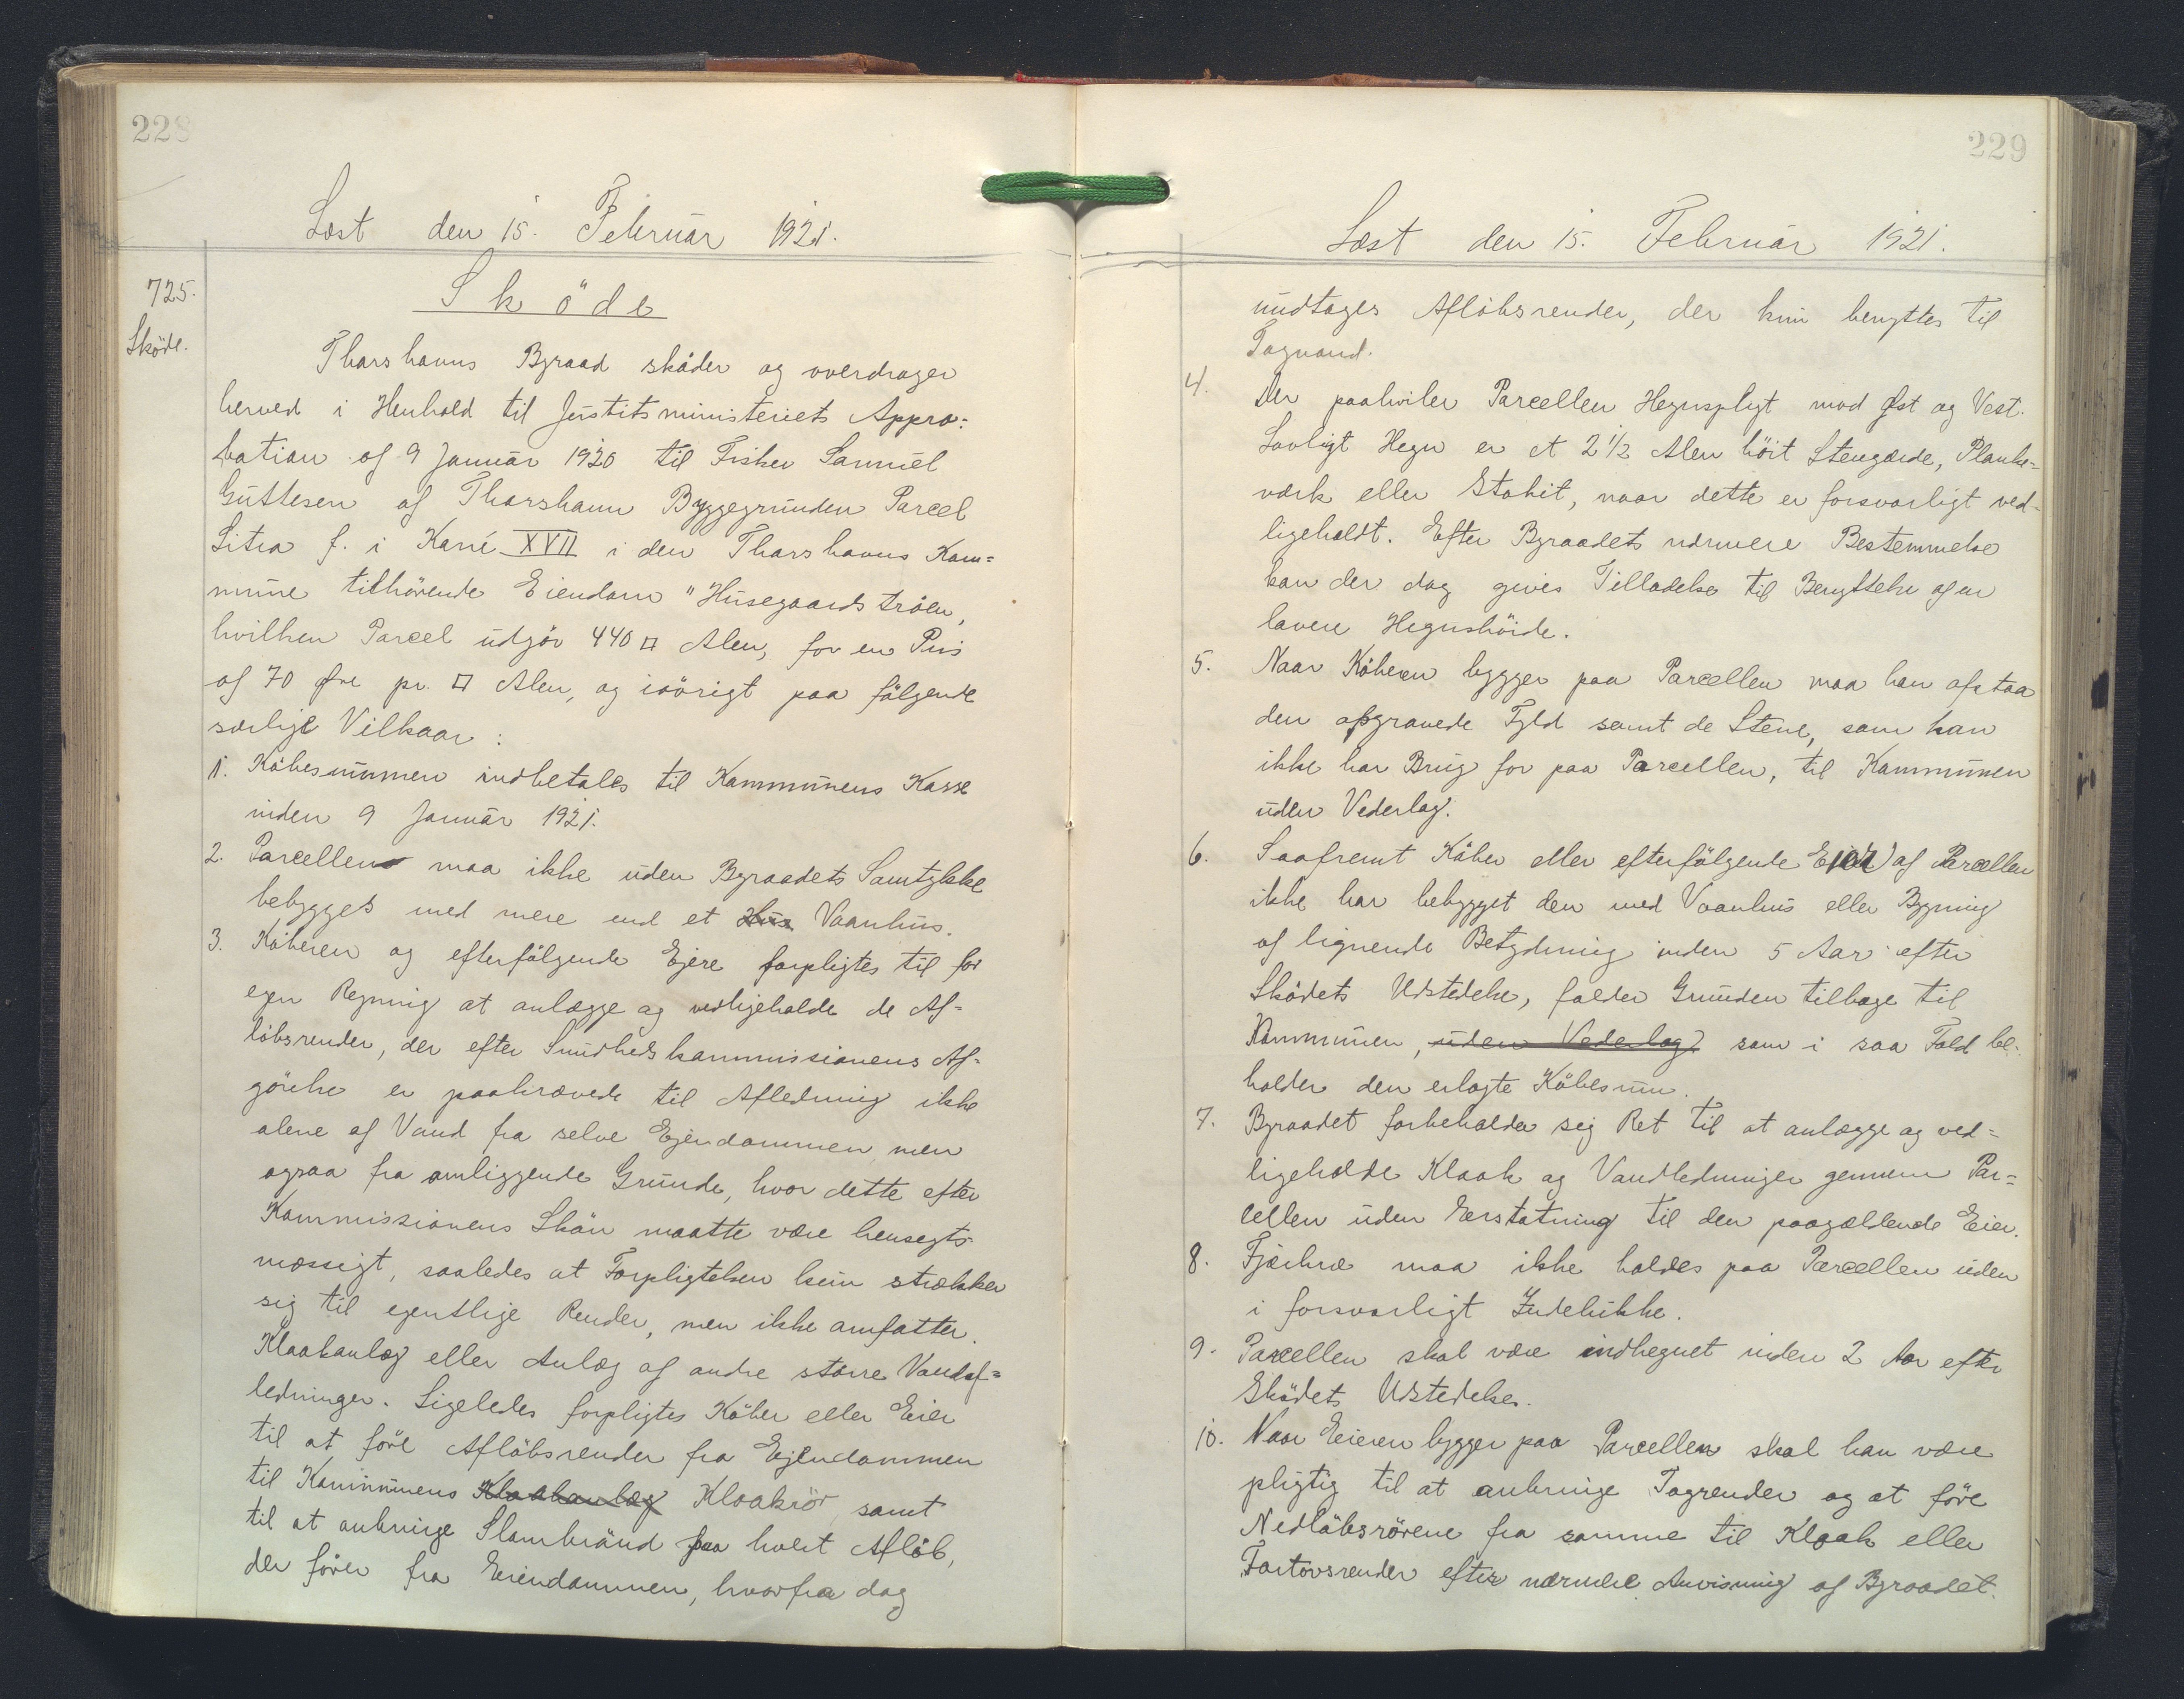 228
Læst den 15. Februar 1921.
725.
Sköde.
Sköde
Thorshavns Byraad sköder og overdrager
herved i Henhold til Justitsministeriets Appro-
bation af 9 Januar 1920 til Fisker Samuel
Guttesen af Thorshavn Byggegrunden Parcel
Litra f. i Karré XVII i den Thorshavns Kom-
mune tilhörende Eiendom "Husegaards tröen,
hvilken Parcel udgör 440 □ Alen, for en Pris
af 70 Øre pr. □ Alen, og iövrigt paa fölgende
særlige Vilkaar:
1. Köbesummen indbetales til Kommunens Kasse
inden 9 Januar 1921.
2. Parcellen maa ikke uden Byraadets Samtykke
bebygges med mere end et Hus Vaanhus.
3. Köberen og efterfölgende Ejere forpligtes til for
egen Regning at anlægge og vedligeholde de Af-
löbsrender, der efter Sundhedskommissionens Af-
görelse er paakrævede til Afledning ikke
alene af Vand fra selve Ejendommen, men
ogsaa fra omliggende Grunde, hvor dette efter
Kommissionens Skön maatte være hensegts-
mæssigt, saaledes at Forpligtelsen kun strækker
sig til egentlige Render, men ikke omfatter
Kloakanlæg eller Anlæg af andre större Vandaf-
ledninger. Ligeledes forpligtes Köber eller Eier
til at före Aflöbsrender fra Ejendommen
til Kommunens Kloakanlæg Kloakrör, samt
til at anbringe Slambrönd paa hvert Aflöb,
der förer fra Eiendommen, hvorfra dog
229
Læst den 15. Februar 1921.
undtages Aflöbsrender, der kun benyttes til
Tagvand.
4. Der paahviler Parcellen Hegnspligt mod Øst og Vest.
Lovligt Hegn er et 2 1/2 Alen höit Stengærde, Planke-
værk eller Stakit, naar dette er forsvarligt ved-
ligeholdt. Efter Byraadets nærmere Bestemmelse
kan der dog gives Tilladelse til Benyttelse af en
lavere Hegnshöide.
5. Naar Köberen bygger paa Parcellen maa han afstaa
den opgravede Fyld samt de Stene, som han
ikke har Brug for paa Parcellen, til Kommunen
uden Vederlag.
6. Saafremt Köber eller efterfölgende Eier af Parcellen
ikke har bebygget den med Vaanhus eller Bygning
af lignende Betydning inden 5 Aar efter
Sködets Udstedelse, falder Grunden tilbage til
Kommunen, uden Vederlag som i saa Fald be-
holder den erlagte Köbesum.
7. Byraadet forbeholder sig Ret til at anlægge og ved-
ligeholde Kloak og Vandledninger gennem Par-
cellen uden Erstatning til den paagældende Eier.
8. Fjerkræ maa ikke holdes paa Parcellen uden
i forsvarligt Indelukke.
9. Parcellen skal være indhegnet inden 2 Aar efter
Sködets Udstedelse.
10. Naar Eieren bygger paa Parcellen skal han være
pligtig til at anbringe Tagrender og at före
Nedløbsrörene fra samme til Kloak eller
Fortovsrender efter nærmere Anvisning af Byraadet.